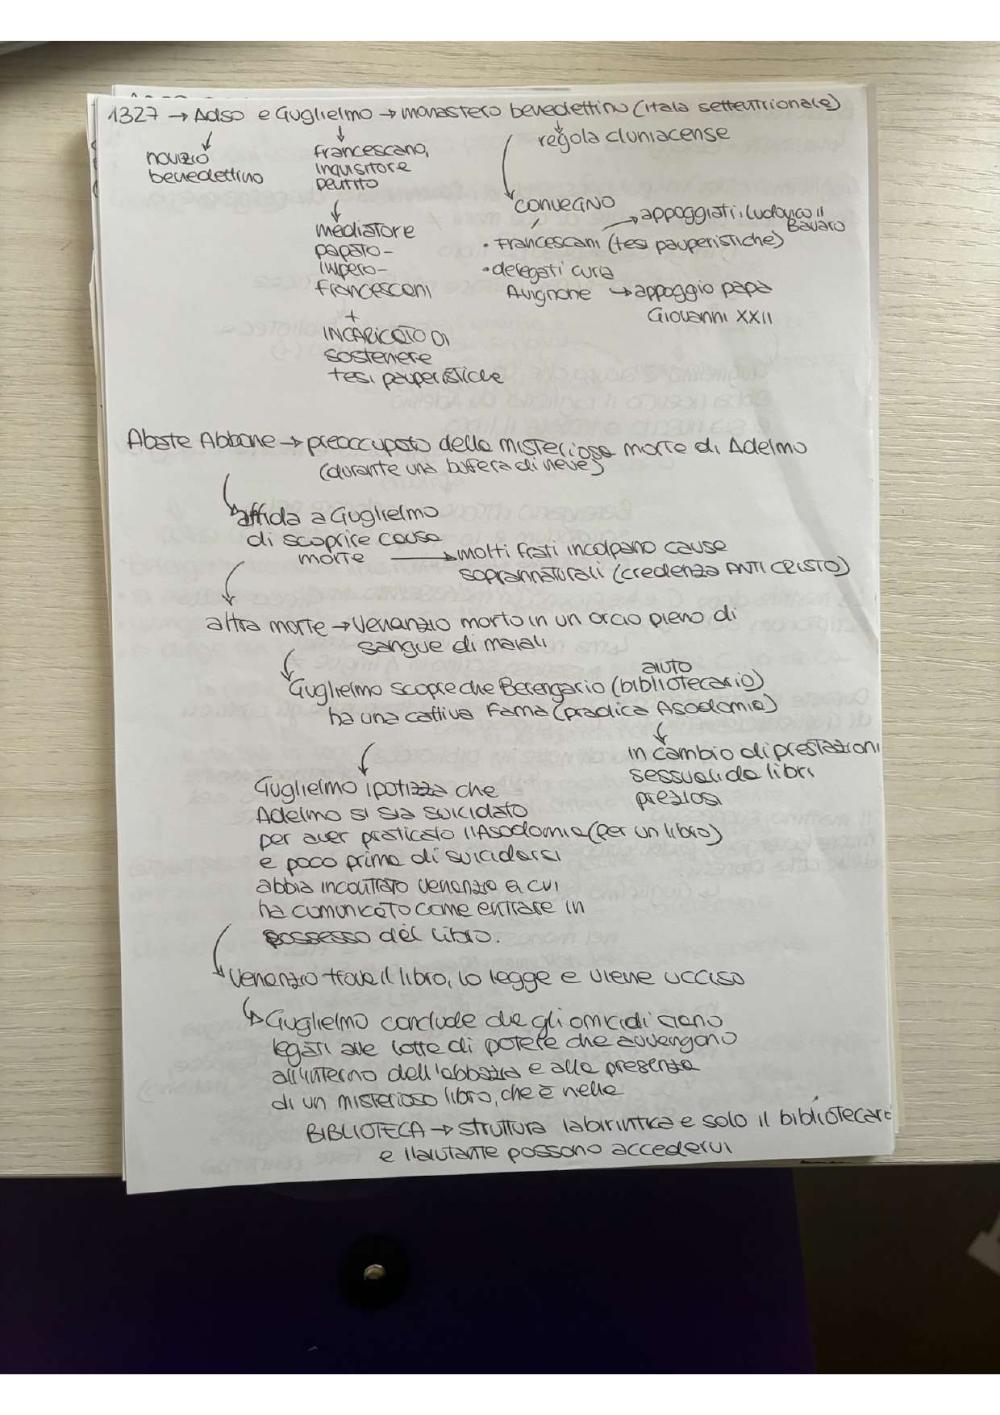 1327 → Adso e Guglielmo → monastero benedettino (Italia settentrionale)
novizio
benedettino
francescano,
inquisitore
pentito
regola cluniacense
mediatore
papato-
impero-
francescani
+
INCARICATO DI
sostenere
tesi pauperistiche
CONVEGNO
→ appoggiati, Ludovico il
Bavaro
• Francescani (tesi pauperistiche)
• delegati curia
Avignone → appoggio papa
Giovanni XXII
Abate Abbone → preoccupato della misteriosa morte di Adelmo
(durante una bufera di neve)
affida a Guglielmo
di scoprire causa
morte → molti frati incolpano cause
soprannaturali (credenza ANTICRISTO)
altra morte → Venanzio morto in un orcio pieno di
sangue di maiali
aiuto
Guglielmo scopre che Berengario (bibliotecario)
ha una cattiva fama (pratica Asodomia)
in cambio di prestazioni
sessuali da libri
preziosi
Guglielmo ipotizza che
Adelmo si sia suicidato
per aver praticato l'Asodomia (per un libro)
e poco prima di suicidarsi
abbia incontrato Venanzio a cui
ha comunicato come entrare in
possesso del libro.
Venanzio trova il libro, lo legge e viene ucciso
Guglielmo conclude che gli omicidi siano
legati alle lotte di potere che avvengono
all'interno dell'abbazia e alla presenza
di un misterioso libro, che è nella
BIBLIOTECA → struttura labirintica e solo il bibliotecario
e l'aiutante possono accedervi